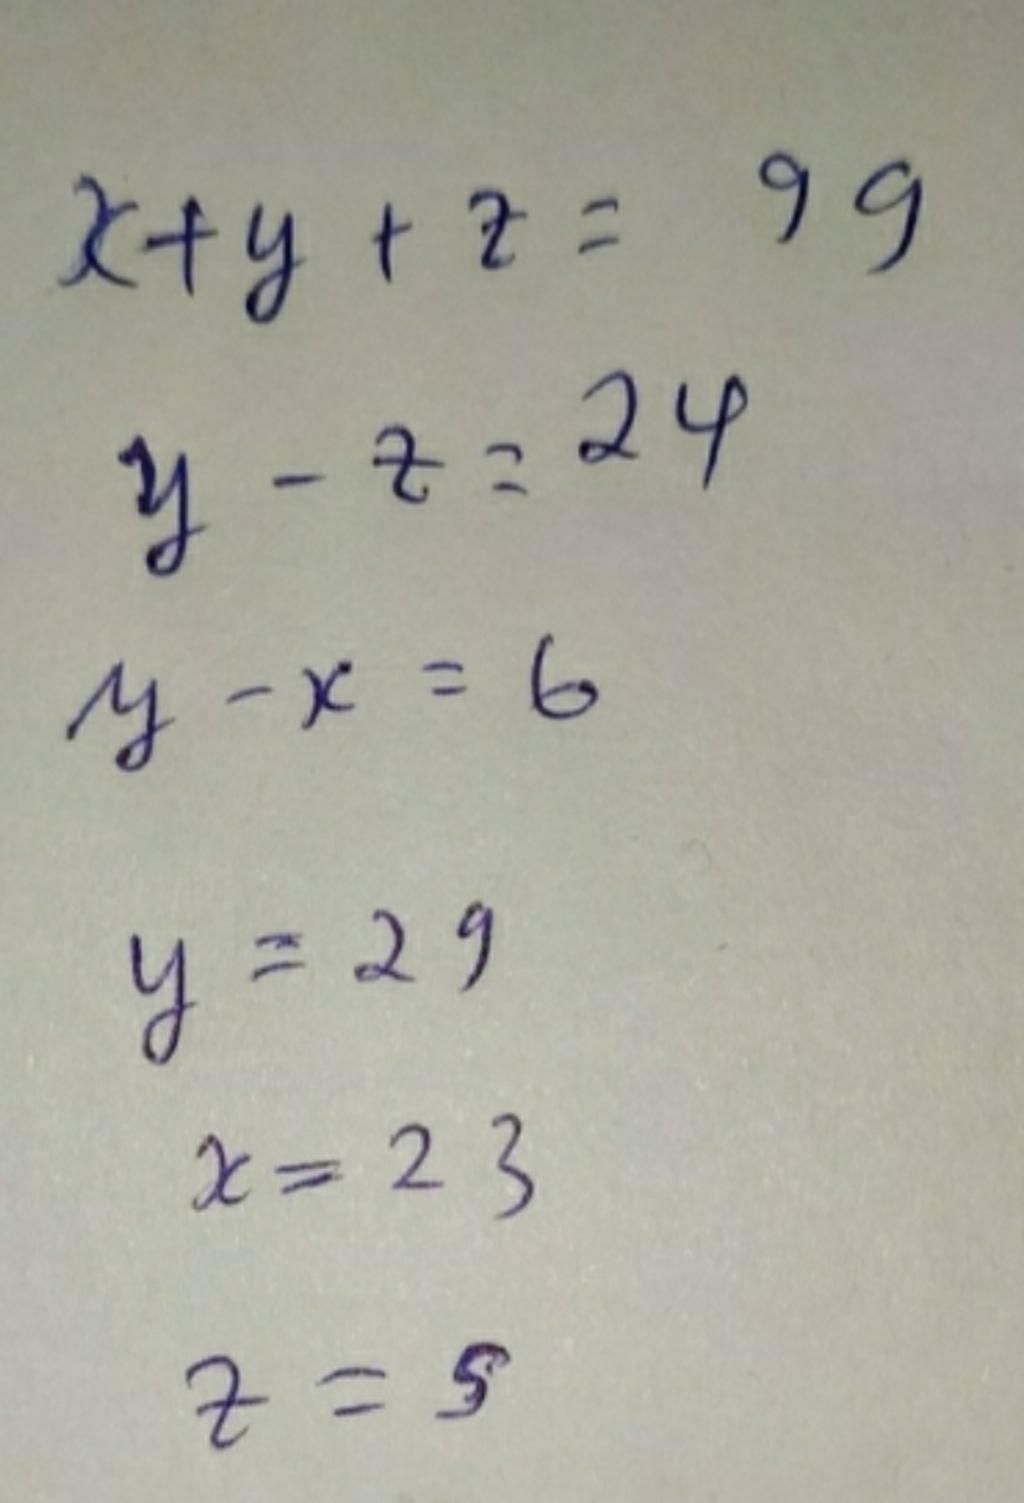 x+y+z = 99
y - z = 24
y - x = 6
y = 29
x = 23
z = 5